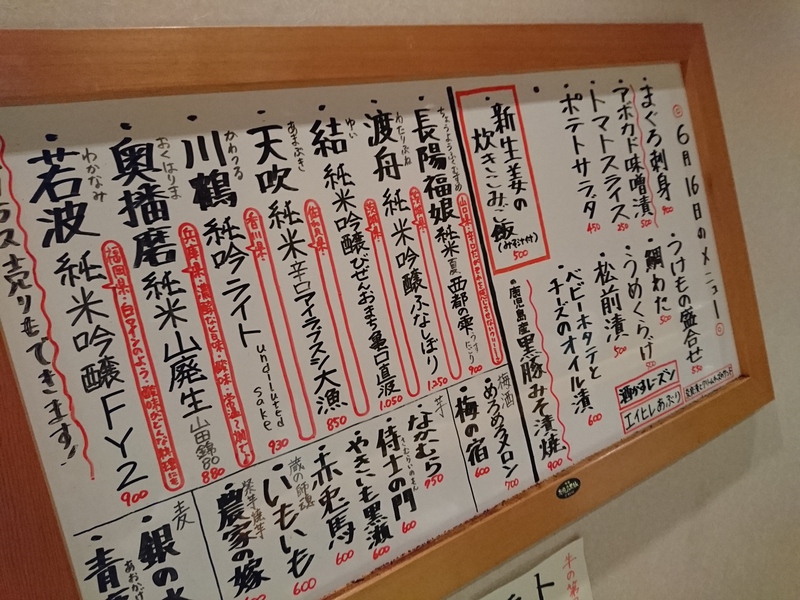 6月16日のメニュー
・まぐろ刺身 900
・アボカド味噌漬 500
・トマトスライス 250
・ポテトサラダ 450
・つけもの盛合せ 550
・鯛わた 500
・うめくらげ 500
・松前漬 500
・ベビーホタテとチーズのオイル漬 600
酒かすレーズン
エイヒレあぶり
・新生姜の炊きこみご飯
(みそ汁付)
500
・鹿児島産黒豚みそ漬焼 900
・長陽福娘 純米 夏 西都の雫 900
山口県
・渡舟 純米吟醸 ふなしぼり 1,250
わたりぶね
・結 純米吟醸 びぜんおまち 亀口直汲 1,050
ゆい
・天吹 純米 辛口 アイラブスシ 大漁 850
あまぶき
佐賀県
・川鶴 純吟ライト undiluted sake 930
かわつる
香川県
・奥播磨 純米 山廃生 山田錦80 880
おくはりま
兵庫県
・若波 純米吟醸 FY2 900
わかなみ
福岡県・白ワインのよう
グラス売りもできます!
梅酒
・めろめろメロン 700
・梅の宿 600
芋
・なかむら 750
・侍士の門 600
さむらいのもん
・やきいも黒瀬 600
・赤兎馬 600
蔵の師魂
・いもいも 600
・農家の嫁 600
麦
・銀の水